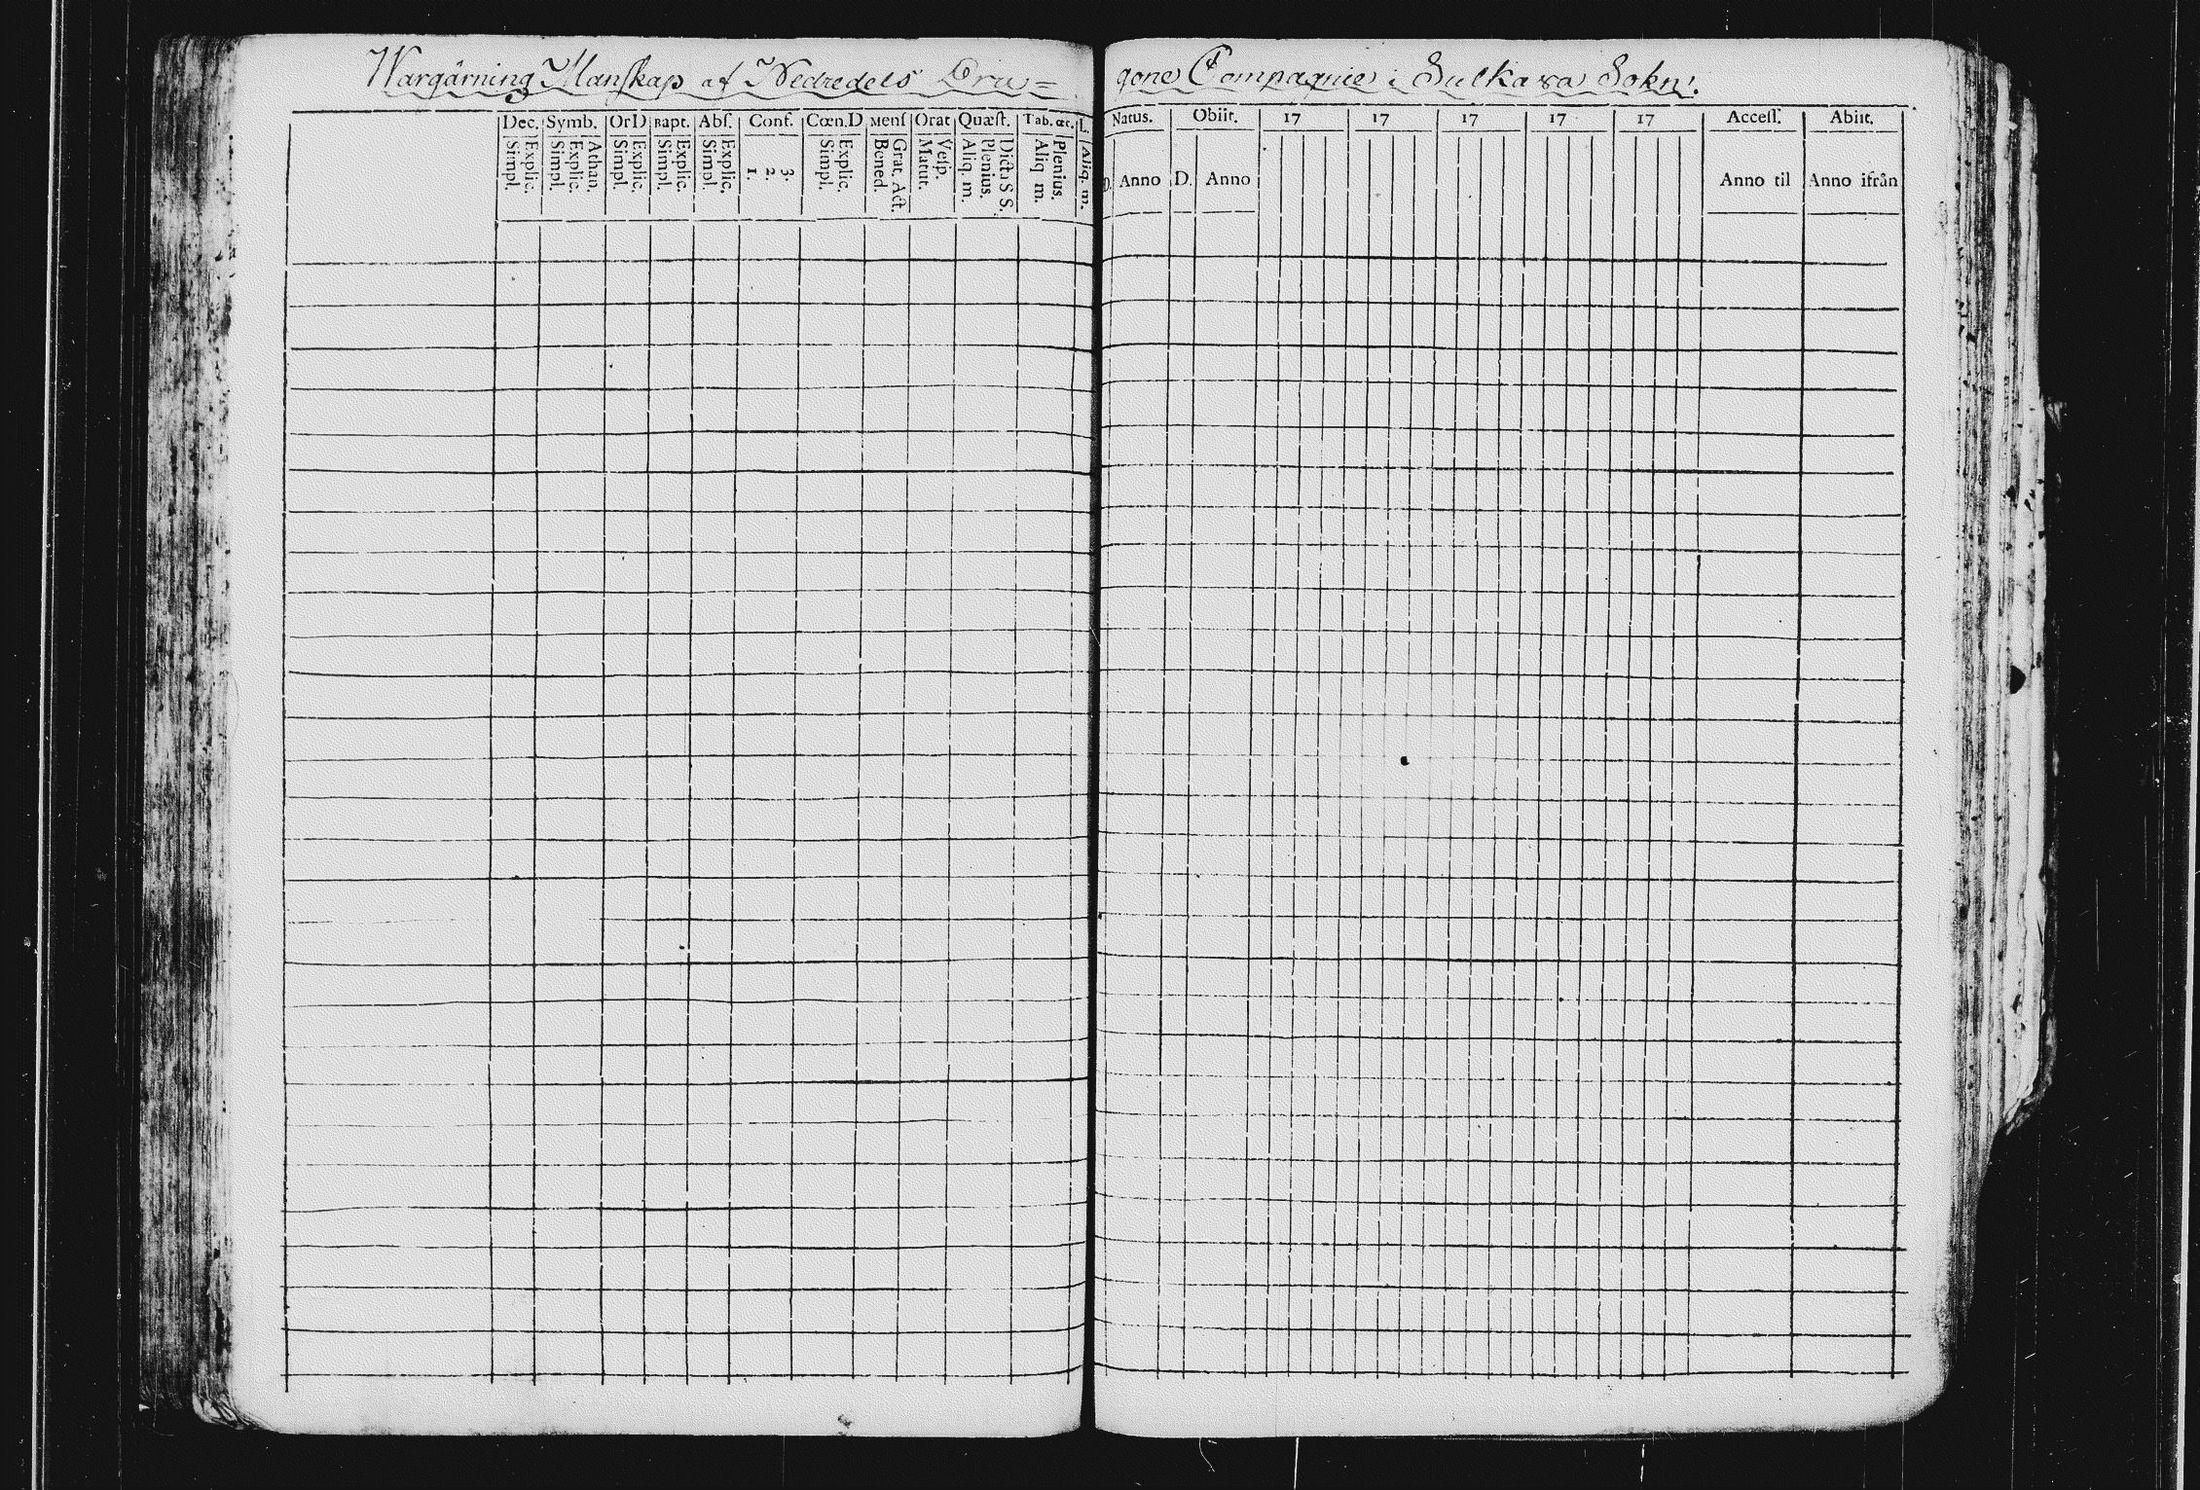 Wargärning Manſkap af Nedredels Dra=
gone Compagnie i Sulkava Sokn.
Dec. Symb. Or D Bapt. Abſ. Conf. Cœn. D Menſ Orat Quæſt. Tab. œc. L.
Simpl. Explic. Simpl. Explic. Athan. Simpl. Explic. Simpl. Explic. Simpl. Explic. 1. 2. 3. Simpl. Explic. Bened. Grat. Act. Matut. Veſp. Aliq. m. Plenius. Dicta S S. Aliq m. Plenius. Aliq. m.
Natus. Obiit. 17 17 17 17 17 Acceſſ. Abiit.
D. Anno D. Anno Anno til Anno ifrån